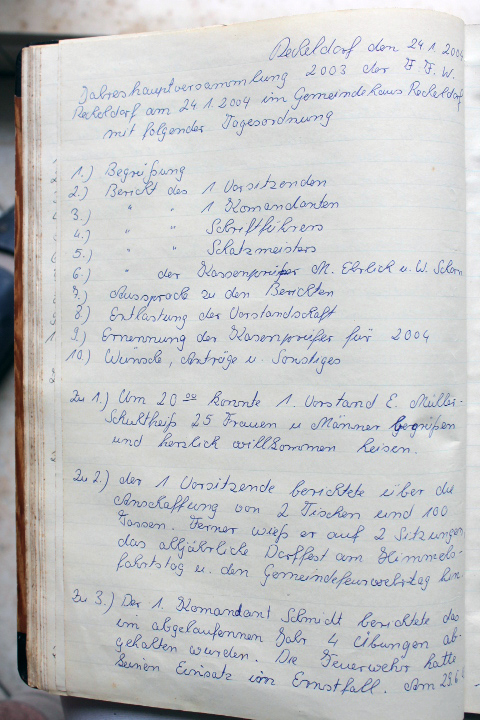 Reckeldorf den 24.1.2004
Jahreshauptversammlung 2003 der F.F.W.
Reckeldorf am 24.1.2004 im Gemeindehaus Reckeldorf
mit folgender Tagesordnung
1.) Begrüßung
2.) Bericht des 1 Vorsitzenden
3.) " " 1 Komandanten
4.) " " Schriftführers
5.) " " Schatzmeisters
6.) " der Kassenprüfer M. Ehrlich u. W. Schorn
7.) Aussprache zu den Berichten
8.) Entlastung der Vorstandschaft
9.) Ernennung der Kasenprüfer für 2004
10.) Wünsche, Anträge u. Sonstiges
Zu 1.) Um 20 00 konnte 1. Vorstand E. Müller-
Schultheiß 25 Frauen u Männer begrüßen
und herzlich willkommen heisen.
Zu 2.) der 1 Vorsitzende berichtete über die
Anschaffung von 2 Tischen und 100
Tassen. Ferner wieß er auf 2 Sitzungen
das alljährliche Dorffest am Himmels-
fahrtstag u. den Gemeindefeuerwehrtag hin.
Zu 3.) Der 1. Komandant Schmidt berichtete das
im abgelaufennen Jahr 4 Übungen ab-
gehalten wurden. Die Feuerwehr hatte
keinen Einsatz im Ernstfall. Am 29.6